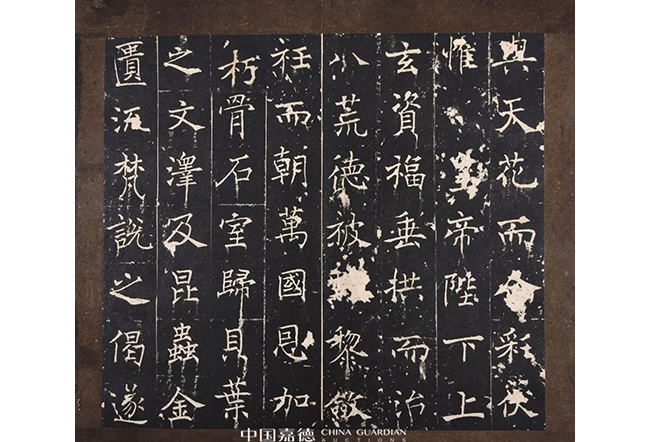 與天花而合彩伏
惟皇帝陛下上
玄資福垂拱而治
八荒德被黎斂
衽而朝萬國恩加
朽骨石室歸貝葉
之文澤及昆蟲金
匱流梵說之偈遂
中国嘉德 CHINA GUARDIAN
AUCTIONS